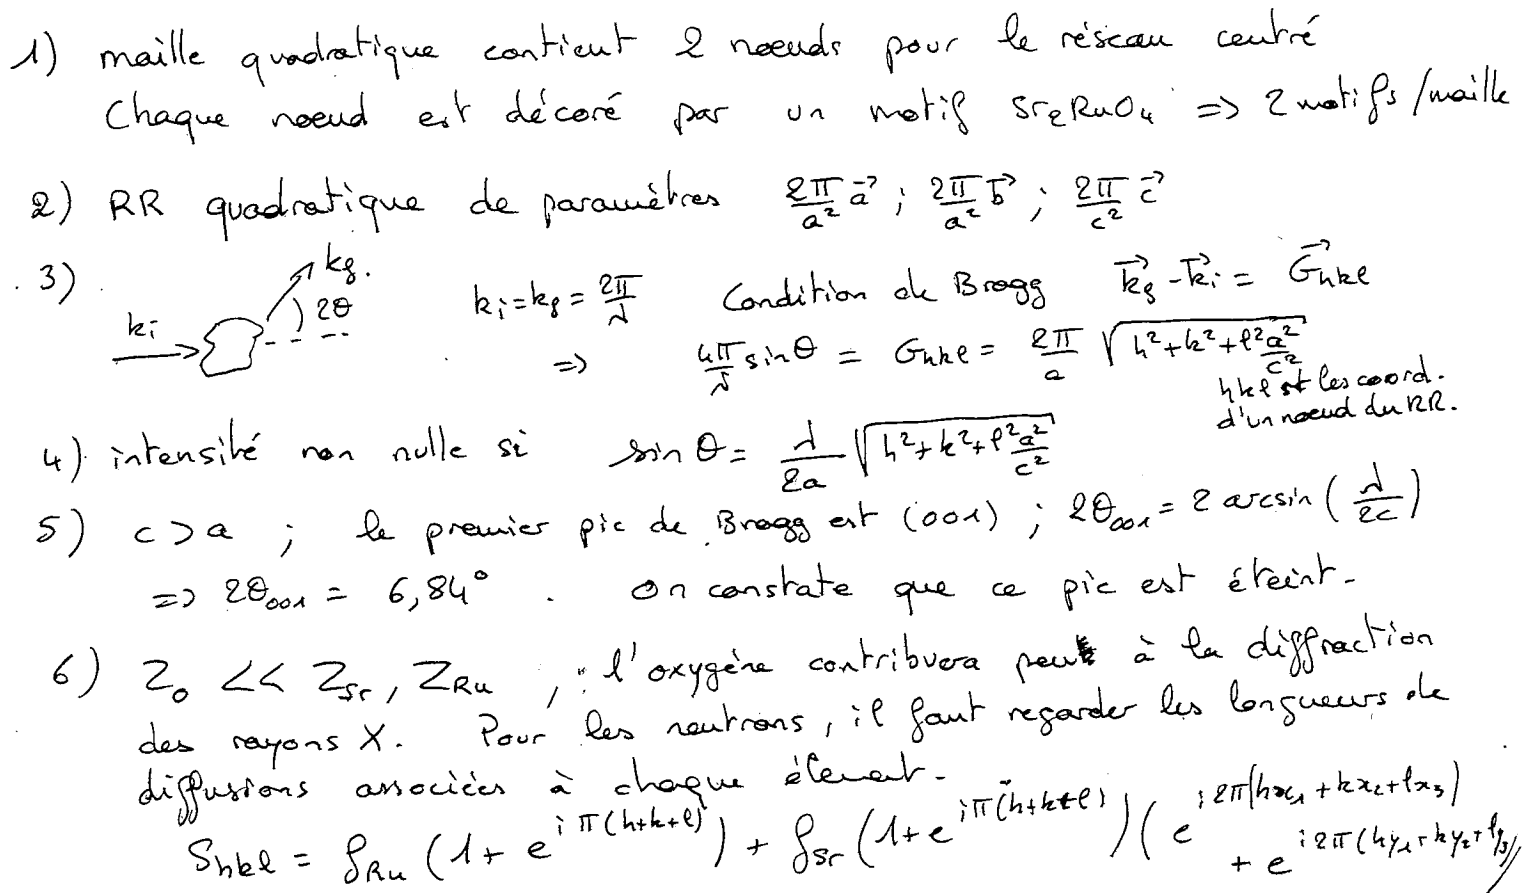 1) maille quadratique contient 2 nœuds pour le réseau centré
Chaque nœud est décoré par un motif Sr2RuO4 => 2 motifs/maille
2) RR quadratique de paramètres 2π/a² a⃗ ; 2π/a² b⃗ ; 2π/c² c⃗
3) ki kf. 2θ ki=kf = 2π/λ Condition de Bragg k⃗f - k⃗i = G⃗hkl
=> 4π/λ sinθ = Ghkl = 2π/a √(h²+k²+l²a²/c²)
hkl st les coord.
d'un nœud du RR.
4) intensité non nulle si sin θ = λ/2a √(h²+k²+l²a²/c²)
5) c>a ; le premier pic de Bragg est (001) ; 2θ001 = 2 arcsin (λ/2c)
=> 2θ001 = 6,84° . On constate que ce pic est éteint.
6) ZO << ZSr, ZRu , l'oxygène contribuera peu à la diffraction
des rayons X. Pour les neutrons, il faut regarder les longueurs de
diffusions associées à chaque élement.
Shkl = fRu (1+ e^{iπ(h+k+l)}) + fSr (1+e^{iπ(h+k+l)})(e^{i2π(hx1+kx2+lx3)}
+ e^{i2π(hy1+ky2+ly3)})